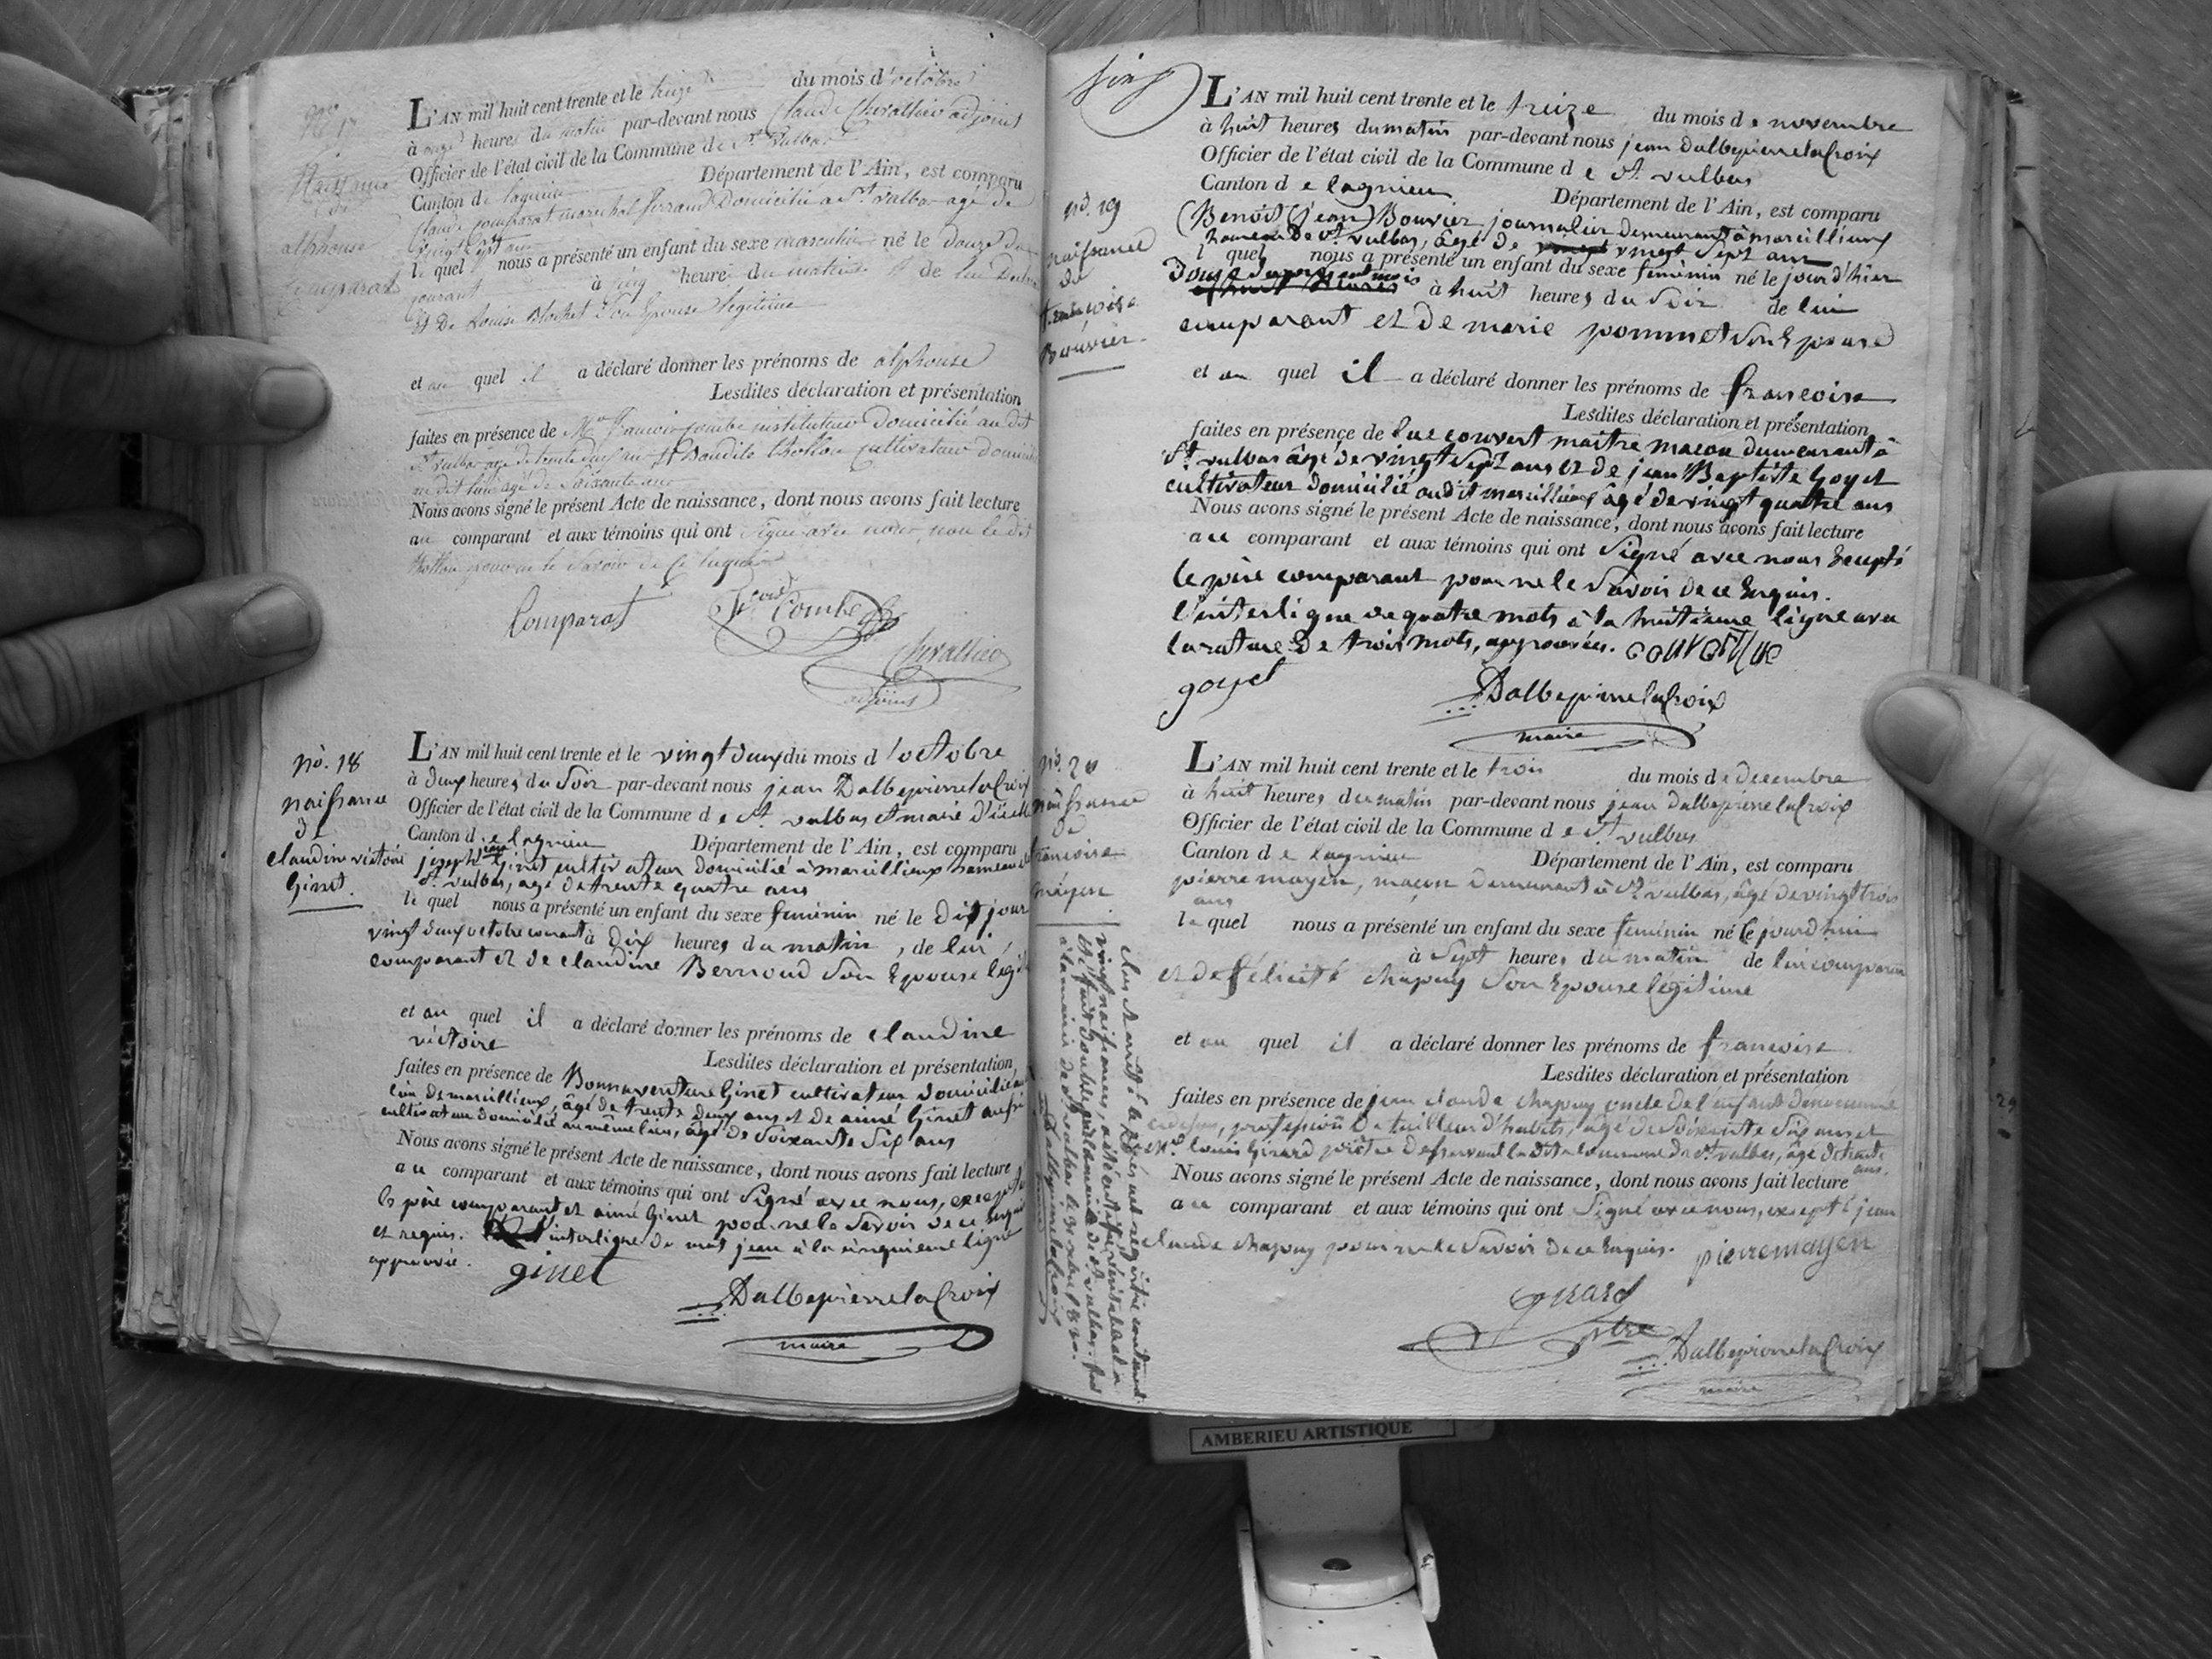 No. 17
Naissance
de
alphonse
Comparat
L'AN mil huit cent trente et le treize du mois d'octobre
à onze heures du matin par-devant nous Claude Chevallier adjoint
Officier de l'état civil de la Commune de St. Vulbas
Canton de lagnieu Département de l'Ain, est comparu
Claude Comparat marechal ferrand Domicilié a St. Vulbas agé de
vingt sept ans
le quel nous a présenté un enfant du sexe masculin né le douze du
courant à cinq heures du matin de lui
Et De Louise Blochet Son Epouse légitime
et au quel il a déclaré donner les prénoms de alphonse
Lesdites déclaration et présentation
faites en présence de Mr. francois Combe instituteur Domicilié au dit
St. Vulbas agé de trente ans et Baudile thollon Cultivateur domicilié
au dit lieu agé de Soixante ans
Nous avons signé le présent Acte de naissance, dont nous avons fait lecture
au comparant et aux témoins qui ont Signé avec nous, non le dit
thollon pour ne le Savoir de Ce Enquis
Comparat
Combe
Chevallier
adjoint
no. 18
naissance
de
claudine victoire
Ginet.
L'AN mil huit cent trente et le vingt deux du mois d'octobre
à deux heures du Soir par-devant nous jean Dalbepierrelacroix
Officier de l'état civil de la Commune de St. vulbas et maire d'icelle
Canton de lagnieu Département de l'Ain, est comparu
joseph jean Ginet cultivateur domicilié à marcillieux hameau de
St. vulbas, âgé de trente quatre ans
le quel nous a présenté un enfant du sexe feminin né le dit jour
vingt deux octobre courant à dix heures du matin, de lui
comparant et de claudine Bernoud Son Epouse légi
et au quel il a déclaré donner les prénoms de claudine
victoire
Lesdites déclaration et présentation
faites en présence de Bonnaventure Ginet cultivateur domicilié au
lieu de marcillieux, âgé de trente deux ans et de aimé Ginet aussi
cultivateur domicilié au même lieu, âgé de Soixante Six ans
Nous avons signé le présent Acte de naissance, dont nous avons fait lecture
au comparant et aux témoins qui ont Signé avec nous, excepté
le père comparant et aimé Ginet pour ne le Savoir de ce Enquis
et requis. l'interligne du mot jean à la cinquieme ligne
approuvé.
ginet
Dalbepierrelacroix
maire
no. 19
naissance
de
francoise
Bouvier.
L'AN mil huit cent trente et le treize du mois de novembre
à huit heures du matin par-devant nous jean dalbepierrelacroix
Officier de l'état civil de la Commune de St. vulbas
Canton de lagnieu Département de l'Ain, est comparu
(Benoit (jean) Bouvier journalier demeurant à marcillieux
hameau de St. vulbas, âgé de vingt Sept ans
le quel nous a présenté un enfant du sexe feminin né le jour d'hier
douze du present mois à huit heures du Soir de lui
comparant et de marie pommet Son Epouse
et au quel il a déclaré donner les prénoms de francoise
Lesdites déclaration et présentation
faites en présence de luc couvert maitre macon demeurant à
St. vulbas âgé de vingt Sept ans et de jean Baptiste Goyet
cultivateur domicilié audit marcillieux âgé de vingt quatre ans
Nous avons signé le présent Acte de naissance, dont nous avons fait lecture
au comparant et aux témoins qui ont Signé avec nous Excepté
le père comparant pour ne le Savoir de ce Enquis.
l'interligne de quatre mots à la huitieme ligne avec
la rature de trois mots, approuvées. couvert luc
goyet
Dalbepierrelacroix
maire
no. 20
naissance
de
francoise
mayen
L'AN mil huit cent trente et le trois du mois de decembre
à huit heures du matin par-devant nous jean dalbepierrelacroix
Officier de l'état civil de la Commune de St. vulbas
Canton de lagnieu Département de l'Ain, est comparu
pierre mayen, maçon demeurant à St. vulbas, âgé de vingt trois
ans
le quel nous a présenté un enfant du sexe feminin né le jourd'hui
à Sept heures du matin de lui comparant
et de félicité chapuy Son Epouse légitime
et au quel il a déclaré donner les prénoms de francoise
Lesdites déclaration et présentation
faites en présence de jean claude chapuy oncle de l'enfant denommé
profession de tailleur d'habits, âgé de Soixante Six ans et
Mr. louis Girard prêtre desservant la dite commune de St. vulbas, âgé de trente
ans.
Nous avons signé le présent Acte de naissance, dont nous avons fait lecture
au comparant et aux témoins qui ont Signé avec nous, excepté jean
claude chapuy pour ne le Savoir de ce Enquis. pierre mayen
girard
ptre
Dalbepierrelacroix
maire
clos et arrêté le présent registre contenant
vingt naissances,
à la mairie de St. vulbas le
Dalbepierrelacroix
AMBERIEU ARTISTIQUE